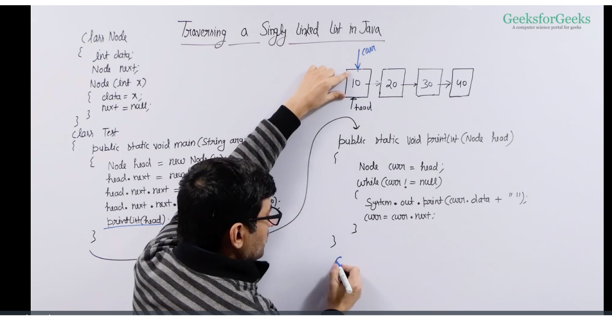 GeeksforGeeks
A computer science portal for geeks
Traversing a Singly Linked List in Java
class Node
{ int data;
Node next;
Node (int x)
{ data = x;
next = null;
} }
class Test
{ public static void main (String
{ Node head = new Node
head.next = new
head.next.next =
head.next.next.
printList(head).
}
curr
10 → 20 → 30 → 40
head
public static void printList (Node head)
{
Node curr = head;
while (curr != null)
{
System.out.print(curr.data + " ");
curr = curr.next;
}
}